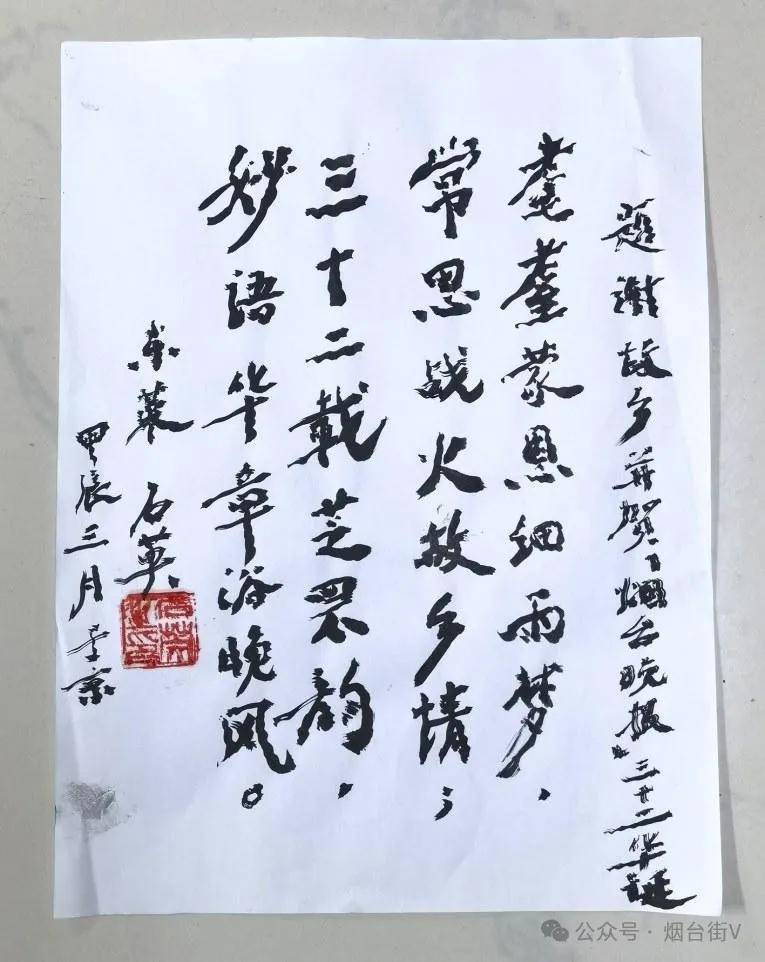 题谢故乡并贺《烟台晚报》三十二华诞
耄耋蒙恩细雨梦，
常思战火故乡情；
三十二载芝罘韵，
妙语华章浴晚风。
东莱 石英
甲辰三月于京
公众号·烟台街V